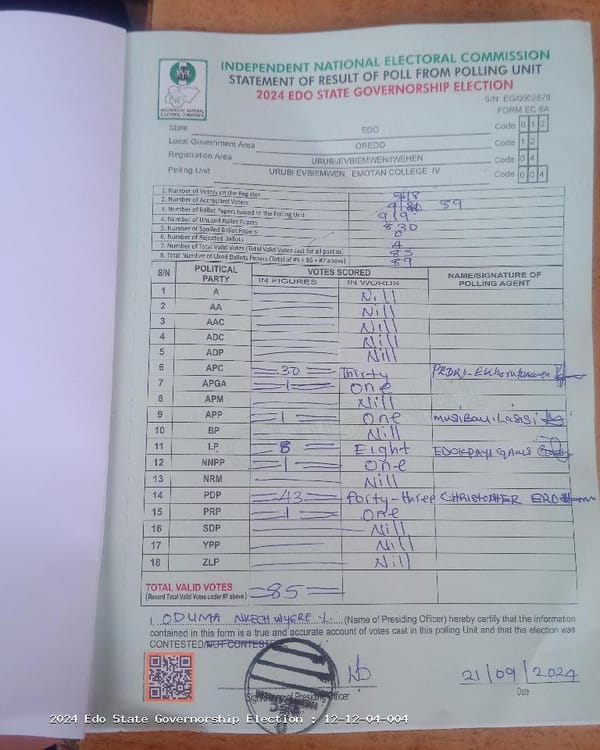 INDEPENDENT NATIONAL ELECTORAL COMMISSION
STATEMENT OF RESULT OF POLL FROM POLLING UNIT
2024 EDO STATE GOVERNORSHIP ELECTION
S/N: EG/0002678
FORM EC 8A
INDEPENDENT NATIONAL ELECTORAL COMMISSION
State EDO Code 0 1 2
Local Government Area OREDO Code 1 2
Registration Area URUBI/EVBIEMWEN/IWEHEN Code 0 4
Polling Unit URUBI EVBIEMWEN, EMOTAN COLLEGE IV Code 0 0 4
1. Number of Voters on the Register 918
2. Number of Accredited Voters 89
3. Number of Ballot Papers Issued to the Polling Unit 919
4. Number of Unused Ballot Papers 830
5. Number of Spoiled Ballot Papers 0
6. Number of Rejected Ballots 4
7. Number of Total Valid Votes (Total Valid Votes cast for all parties) 85
8. Total Number of Used Ballots Papers (Total of #5 + #6 + #7 above) 89
S/N POLITICAL PARTY VOTES SCORED NAME/SIGNATURE OF POLLING AGENT
IN FIGURES IN WORDS
1 A Nill
2 AA Nill
3 AAC Nill
4 ADC Nill
5 ADP Nill
6 APC 30 Thirty PEDRO
7 APGA 1 One
8 APM Nill
9 APP 1 One MUSIBAU. LASISI
10 BP Nill
11 LP 8 Eight
12 NNPP 1 One
13 NRM Nill
14 PDP 43 Forty-three CHRISTOPHER
15 PRP 1 One
16 SDP Nill
17 YPP Nill
18 ZLP Nill
TOTAL VALID VOTES 85
(Record Total Valid Votes under #7 above)
I, ODUMA (Name of Presiding Officer) hereby certify that the information
contained in this form is a true and accurate account of votes cast in this polling Unit and that the election was
CONTESTED/NOT CONTESTED
21/09/2024
Officer Date
2024 Edo State Governorship Election : 12-12-04-004